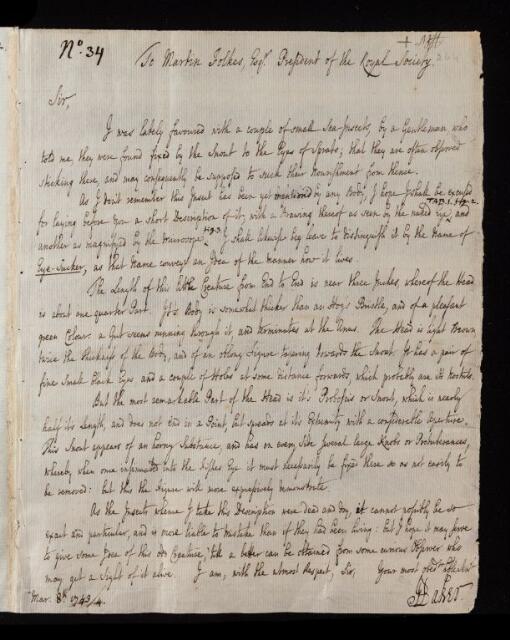 No. 34
To Martin Folkes, Esqr. President of the Royal Society.
Sir,
I was lately favoured with a couple of small Sea-Insects, by a Gentleman who
told me, they were found fixed by the Snout to the Eyes of Sprats; that they are often observed
sticking there, and may consequently be supposed to suck their Nourishment from thence.
As I don't remember this Insect has been yet mentioned by any Body, I hope I shall be excused
TAB. 1. Fig. 2.
for laying before You a Short Description of it, with a Drawing thereof as seen by the naked eye, and
Fig 3.
another as magnified by the Microscope. I shall likewise beg leave to distinguish it by the Name of
Eye-Sucker, as that Name conveys an Idea of the manner how it lives.
The Length of this little Creature from End to End is near three Inches, whereof the Head
is about one quarter Part. It's Body is somewhat thicker than an Hog's Bristle, and of a pleasant
green Colour: a Gut seems running through it, and terminates at the Anus. The Head is light Brown
twice the thickness of the Body, and of an oblong Figure tapering towards the Snout. It has a pair of
fine Small Black Eyes and a couple of Holes at some distance forwards, which probably are its Nostrils.
But the most remarkable Part of the Head is its Proboscis or Snout, which is nearly
half its Length, and does not end in a Point, but spreads at its Extremity with a considerable Aperture.
This Snout appears of an horny Substance, and has on every Side several large Knobs or Protuberances,
whereby, when once insinuated into the Fishes Eye it must necessarily be fixed there so as not easily to
be removed: but this the Figure will more expressively demonstrate.
As the Insects whence I take this Description were dead and dry, it cannot possibly be so
exact and particular, and is more liable to mistake than if they had been living: but I hope it may serve
to give some Idea of this odd Creature, till a better can be obtained from some curious Observer who
may get a Sight of it alive. I am, with the utmost Respect, Sir, Your most obedt.
Mar. 8th. 1743/4.
H Baker.